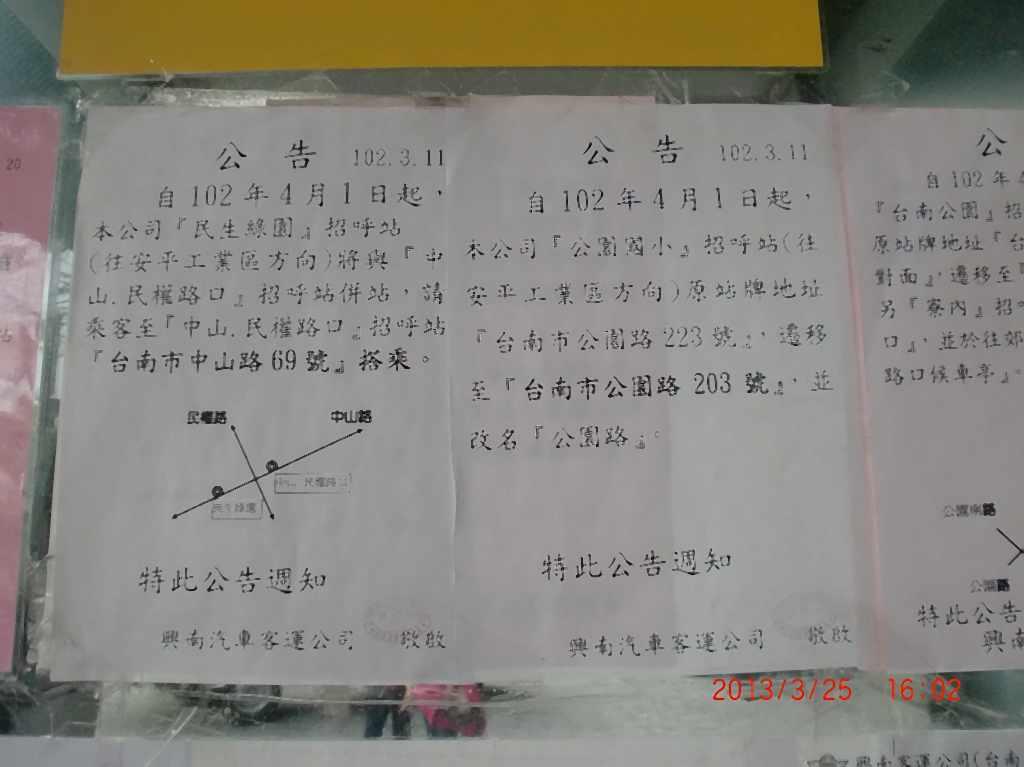 20
公告 102.3.11
自102年4月1日起，
本公司『民生綠園』招呼站
(往安平工業區方向)將與『中
山.民權路口』招呼站併站，請
乘客至『中山.民權路口』招呼站
『台南市中山路69號』搭乘。
民權路
中山路
民權路口
民生綠園
特此公告週知
興南汽車客運公司 敬啟
公告 102.3.11
自102年4月1日起，
本公司『公園國小』招呼站(往
安平工業區方向)原站牌地址
『台南市公園路223號』，遷移
至『台南市公園路203號』，並
改名『公園路』。
特此公告週知
興南汽車客運公司 敬啟
公
自102年4
『台南公園』招
原站牌地址『台
對面』，遷移至『
另『寮內』招呼
口』，並於往郊
路口候車亭』。
公園南路
公園路
特此公告
興南
2013/3/25 16:02
興南客運公司(台南